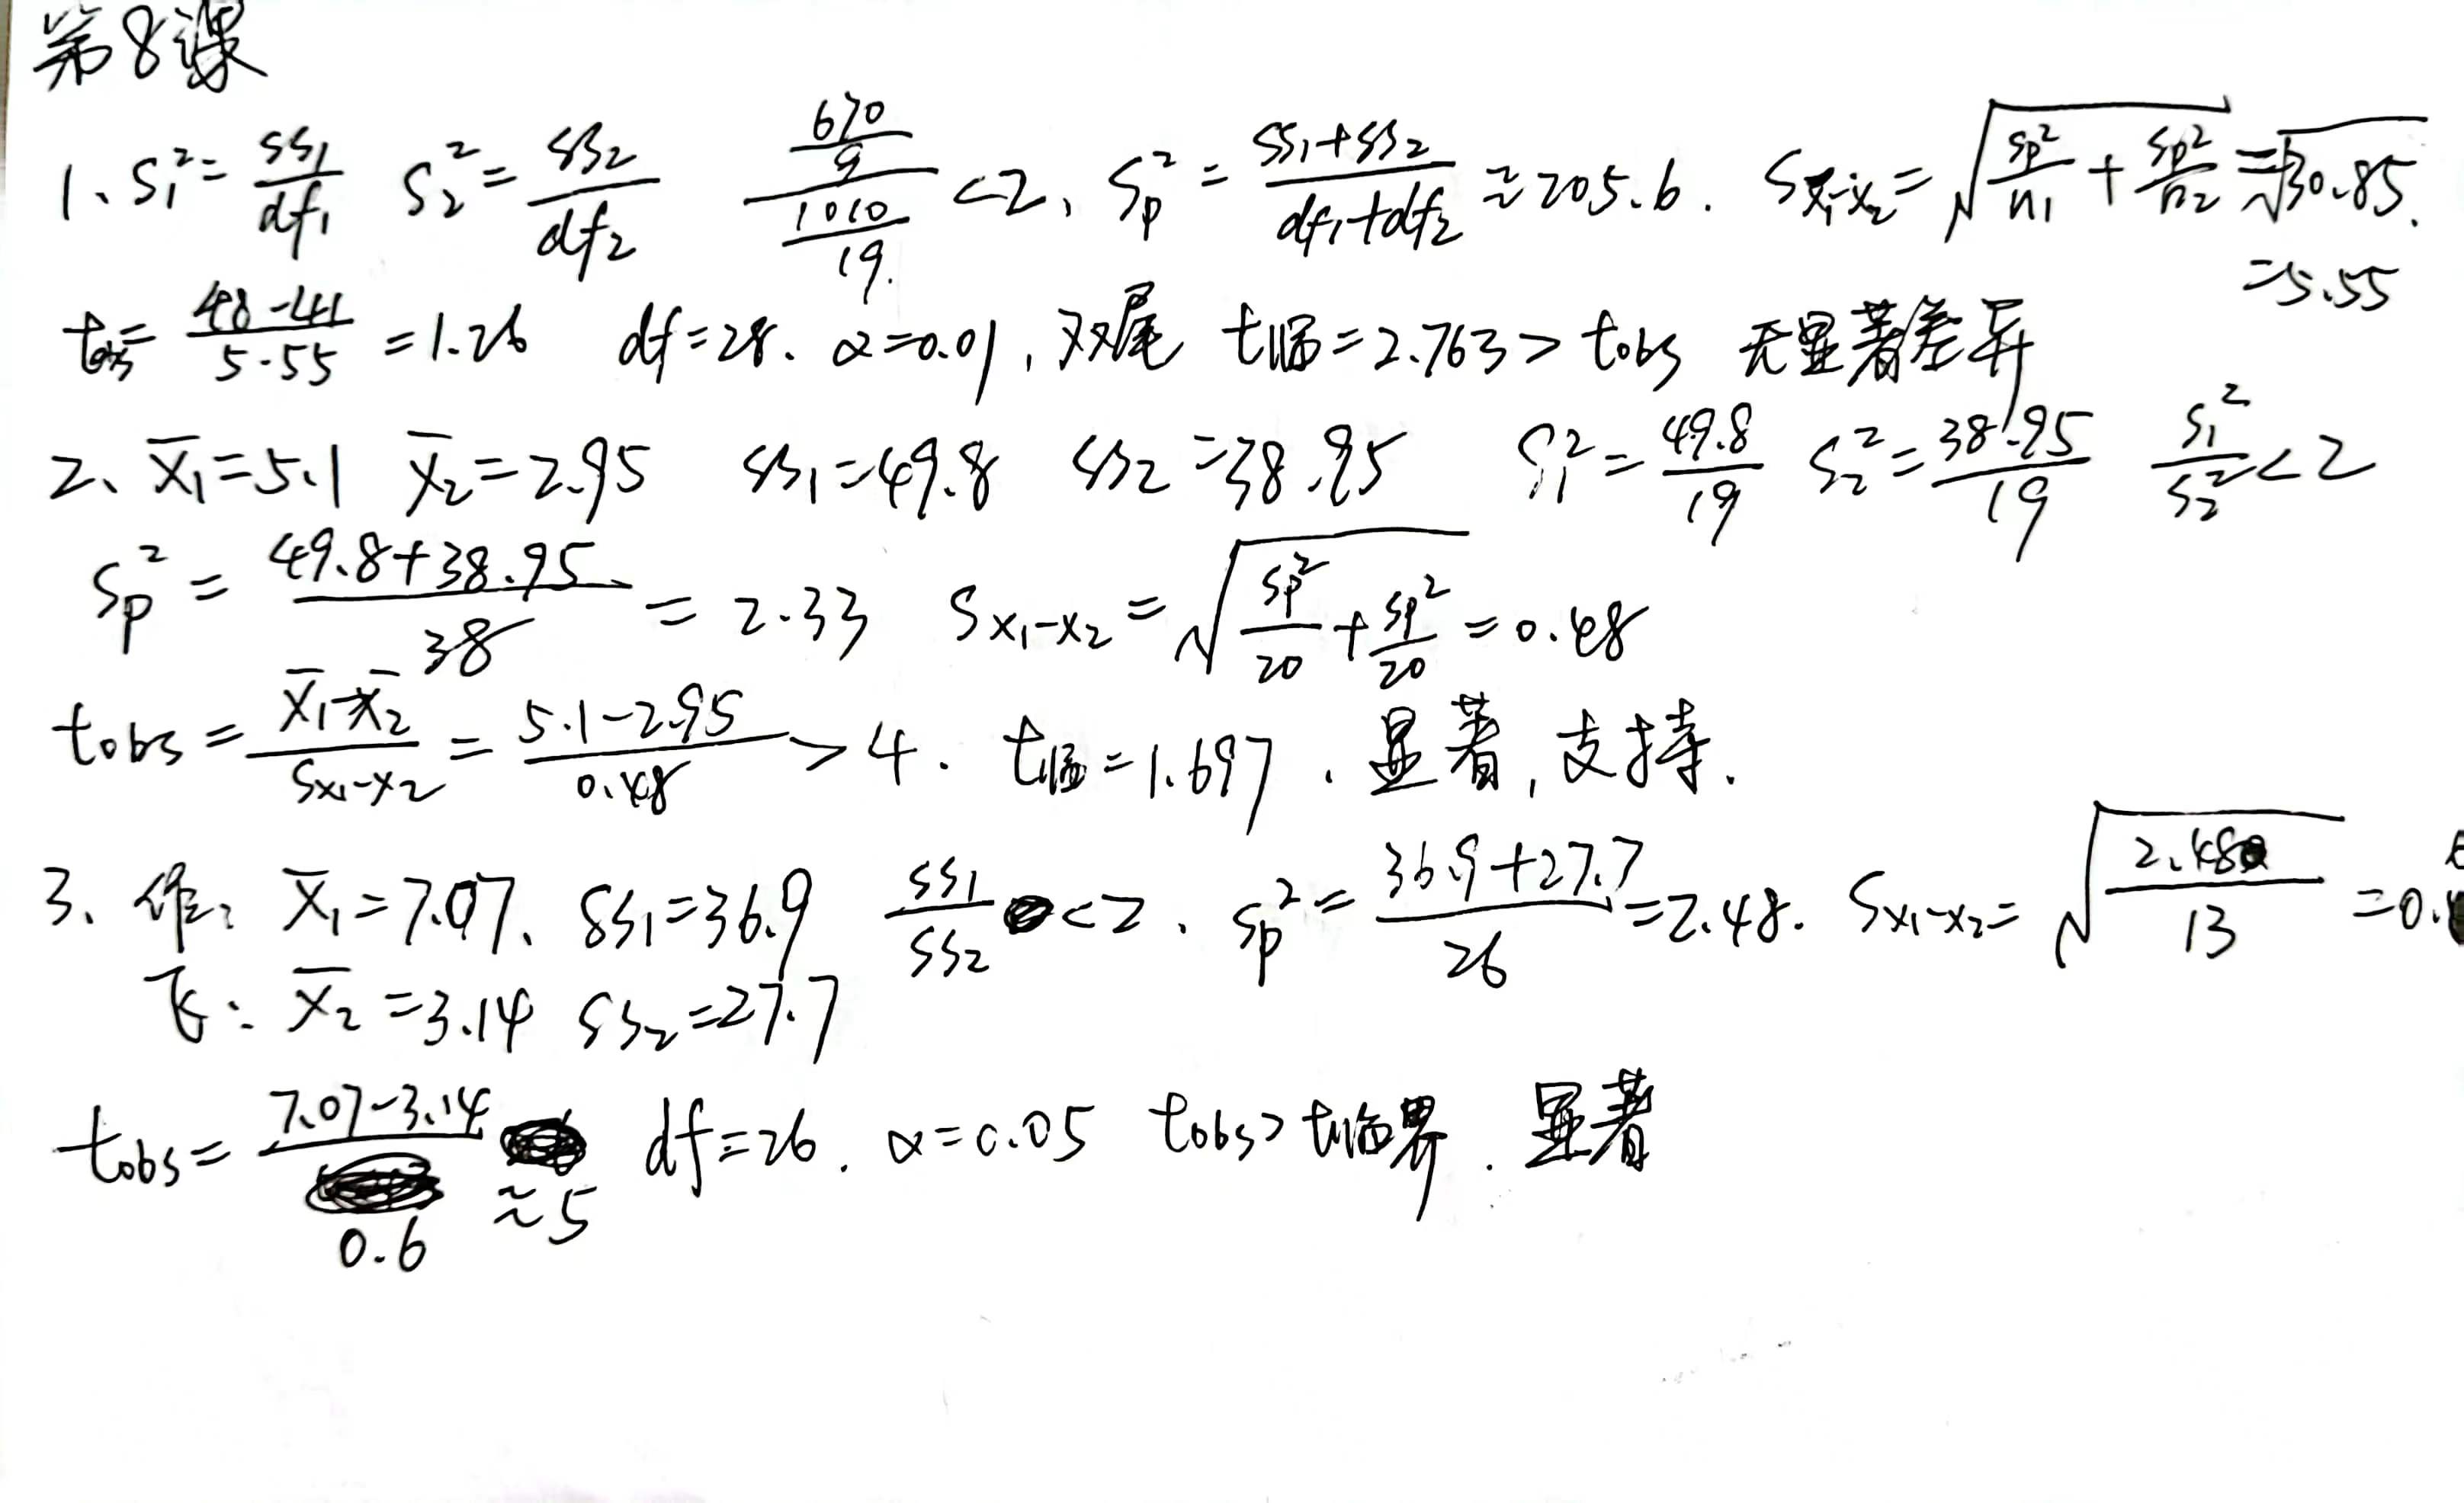 第8课
1、S₁² = SS₁/df₁  S₂² = SS₂/df₂  (670/9)/(1010/19) <2、Sp² = (SS₁+SS₂)/(df₁+df₂) ≈ 205.6. S x̄₁-x̄₂ = √(Sp²/n₁ + Sp²/n₂) = √30.85.
=5.55
tobs = (48-41)/5.55 = 1.26  df=28. α=0.01,双尾 t临=2.763 > tobs 无显著差异
2、X̄₁=5.1 X̄₂=2.95 SS₁=49.8 SS₂=38.95 S₁² = 49.8/19 S₂² = 38.95/19 S₁²/S₂² <2
Sp² = (49.8+38.95)/38 = 2.33 Sx₁-x₂ = √(Sp²/20 + Sp²/20) = 0.48
tobs = (X̄₁-X̄₂)/Sx₁-x₂ = (5.1-2.95)/0.48 > 4. t临=1.697. 显著,支持.
3、 X̄₁=7.07、SS₁=36.9 SS₁/SS₂ <2. Sp² = (36.9+27.7)/26 = 2.48. Sx₁-x₂ = √(2.48/13) =0.
飞: X̄₂=3.14 SS₂=27.7
tobs = (7.07-3.14)/0.6 ≈5 df=26. α=0.05 tobs> t临界. 显著